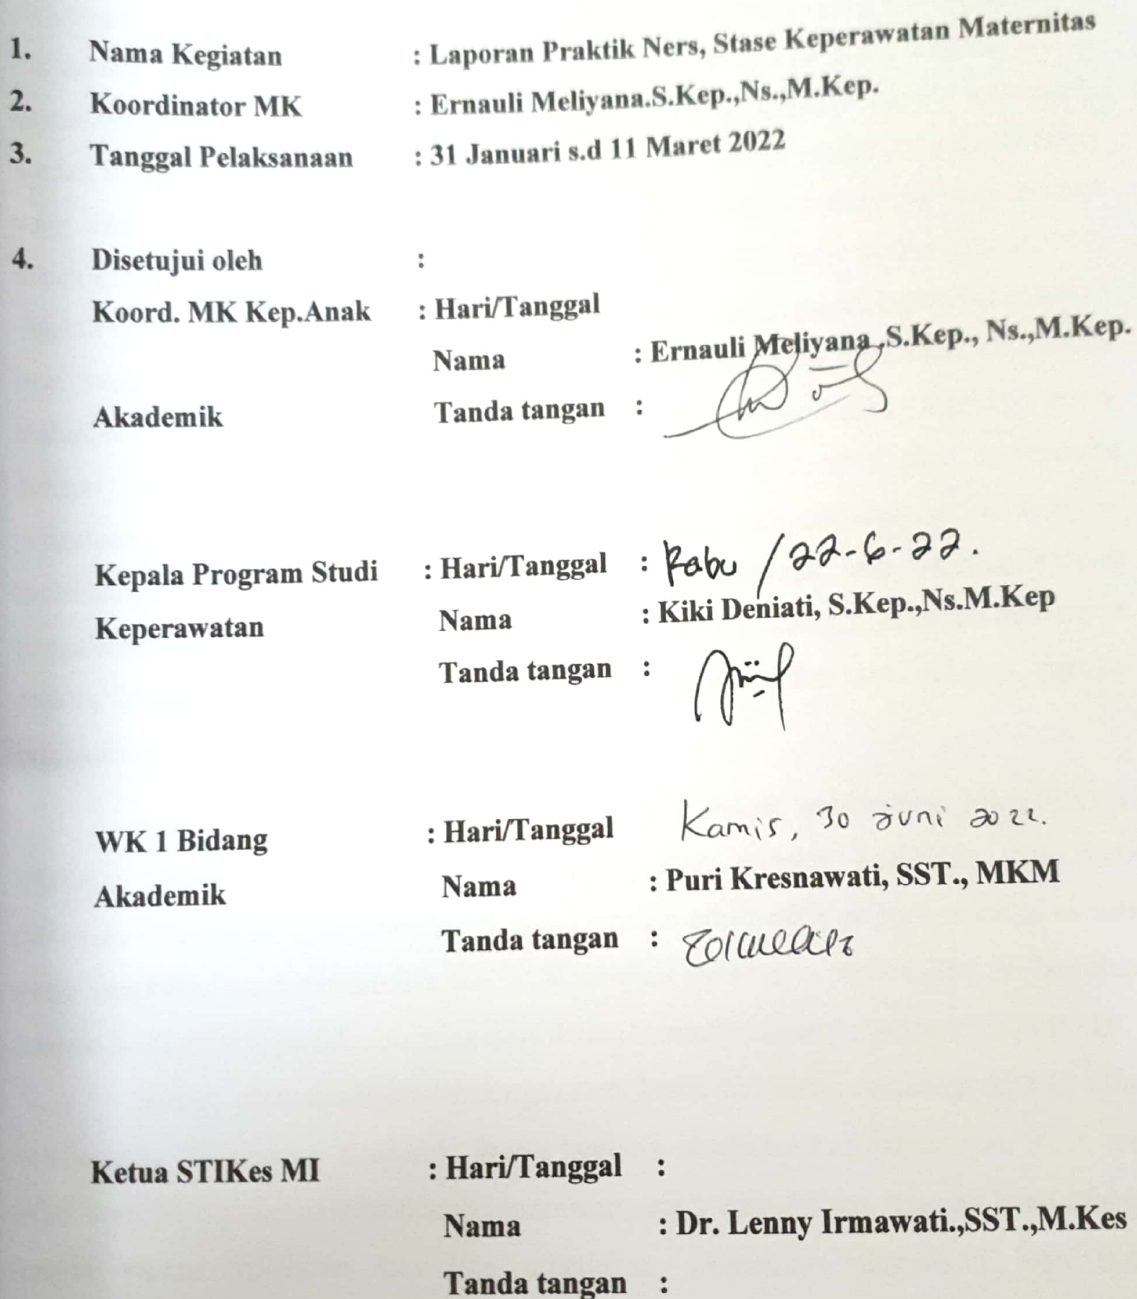 1. Nama Kegiatan : Laporan Praktik Ners, Stase Keperawatan Maternitas
2. Koordinator MK : Ernauli Meliyana.S.Kep.,Ns.,M.Kep.
3. Tanggal Pelaksanaan : 31 Januari s.d 11 Maret 2022
4. Disetujui oleh :
Koord. MK Kep.Anak : Hari/Tanggal
Nama : Ernauli Meliyana ,S.Kep., Ns.,M.Kep.
Akademik Tanda tangan :
Kepala Program Studi : Hari/Tanggal : Rabu / 22-6-22.
Keperawatan Nama : Kiki Deniati, S.Kep.,Ns.M.Kep
Tanda tangan :
WK 1 Bidang : Hari/Tanggal Kamis, 30 juni 2022.
Akademik Nama : Puri Kresnawati, SST., MKM
Tanda tangan :
Ketua STIKes MI : Hari/Tanggal :
Nama : Dr. Lenny Irmawati.,SST.,M.Kes
Tanda tangan :